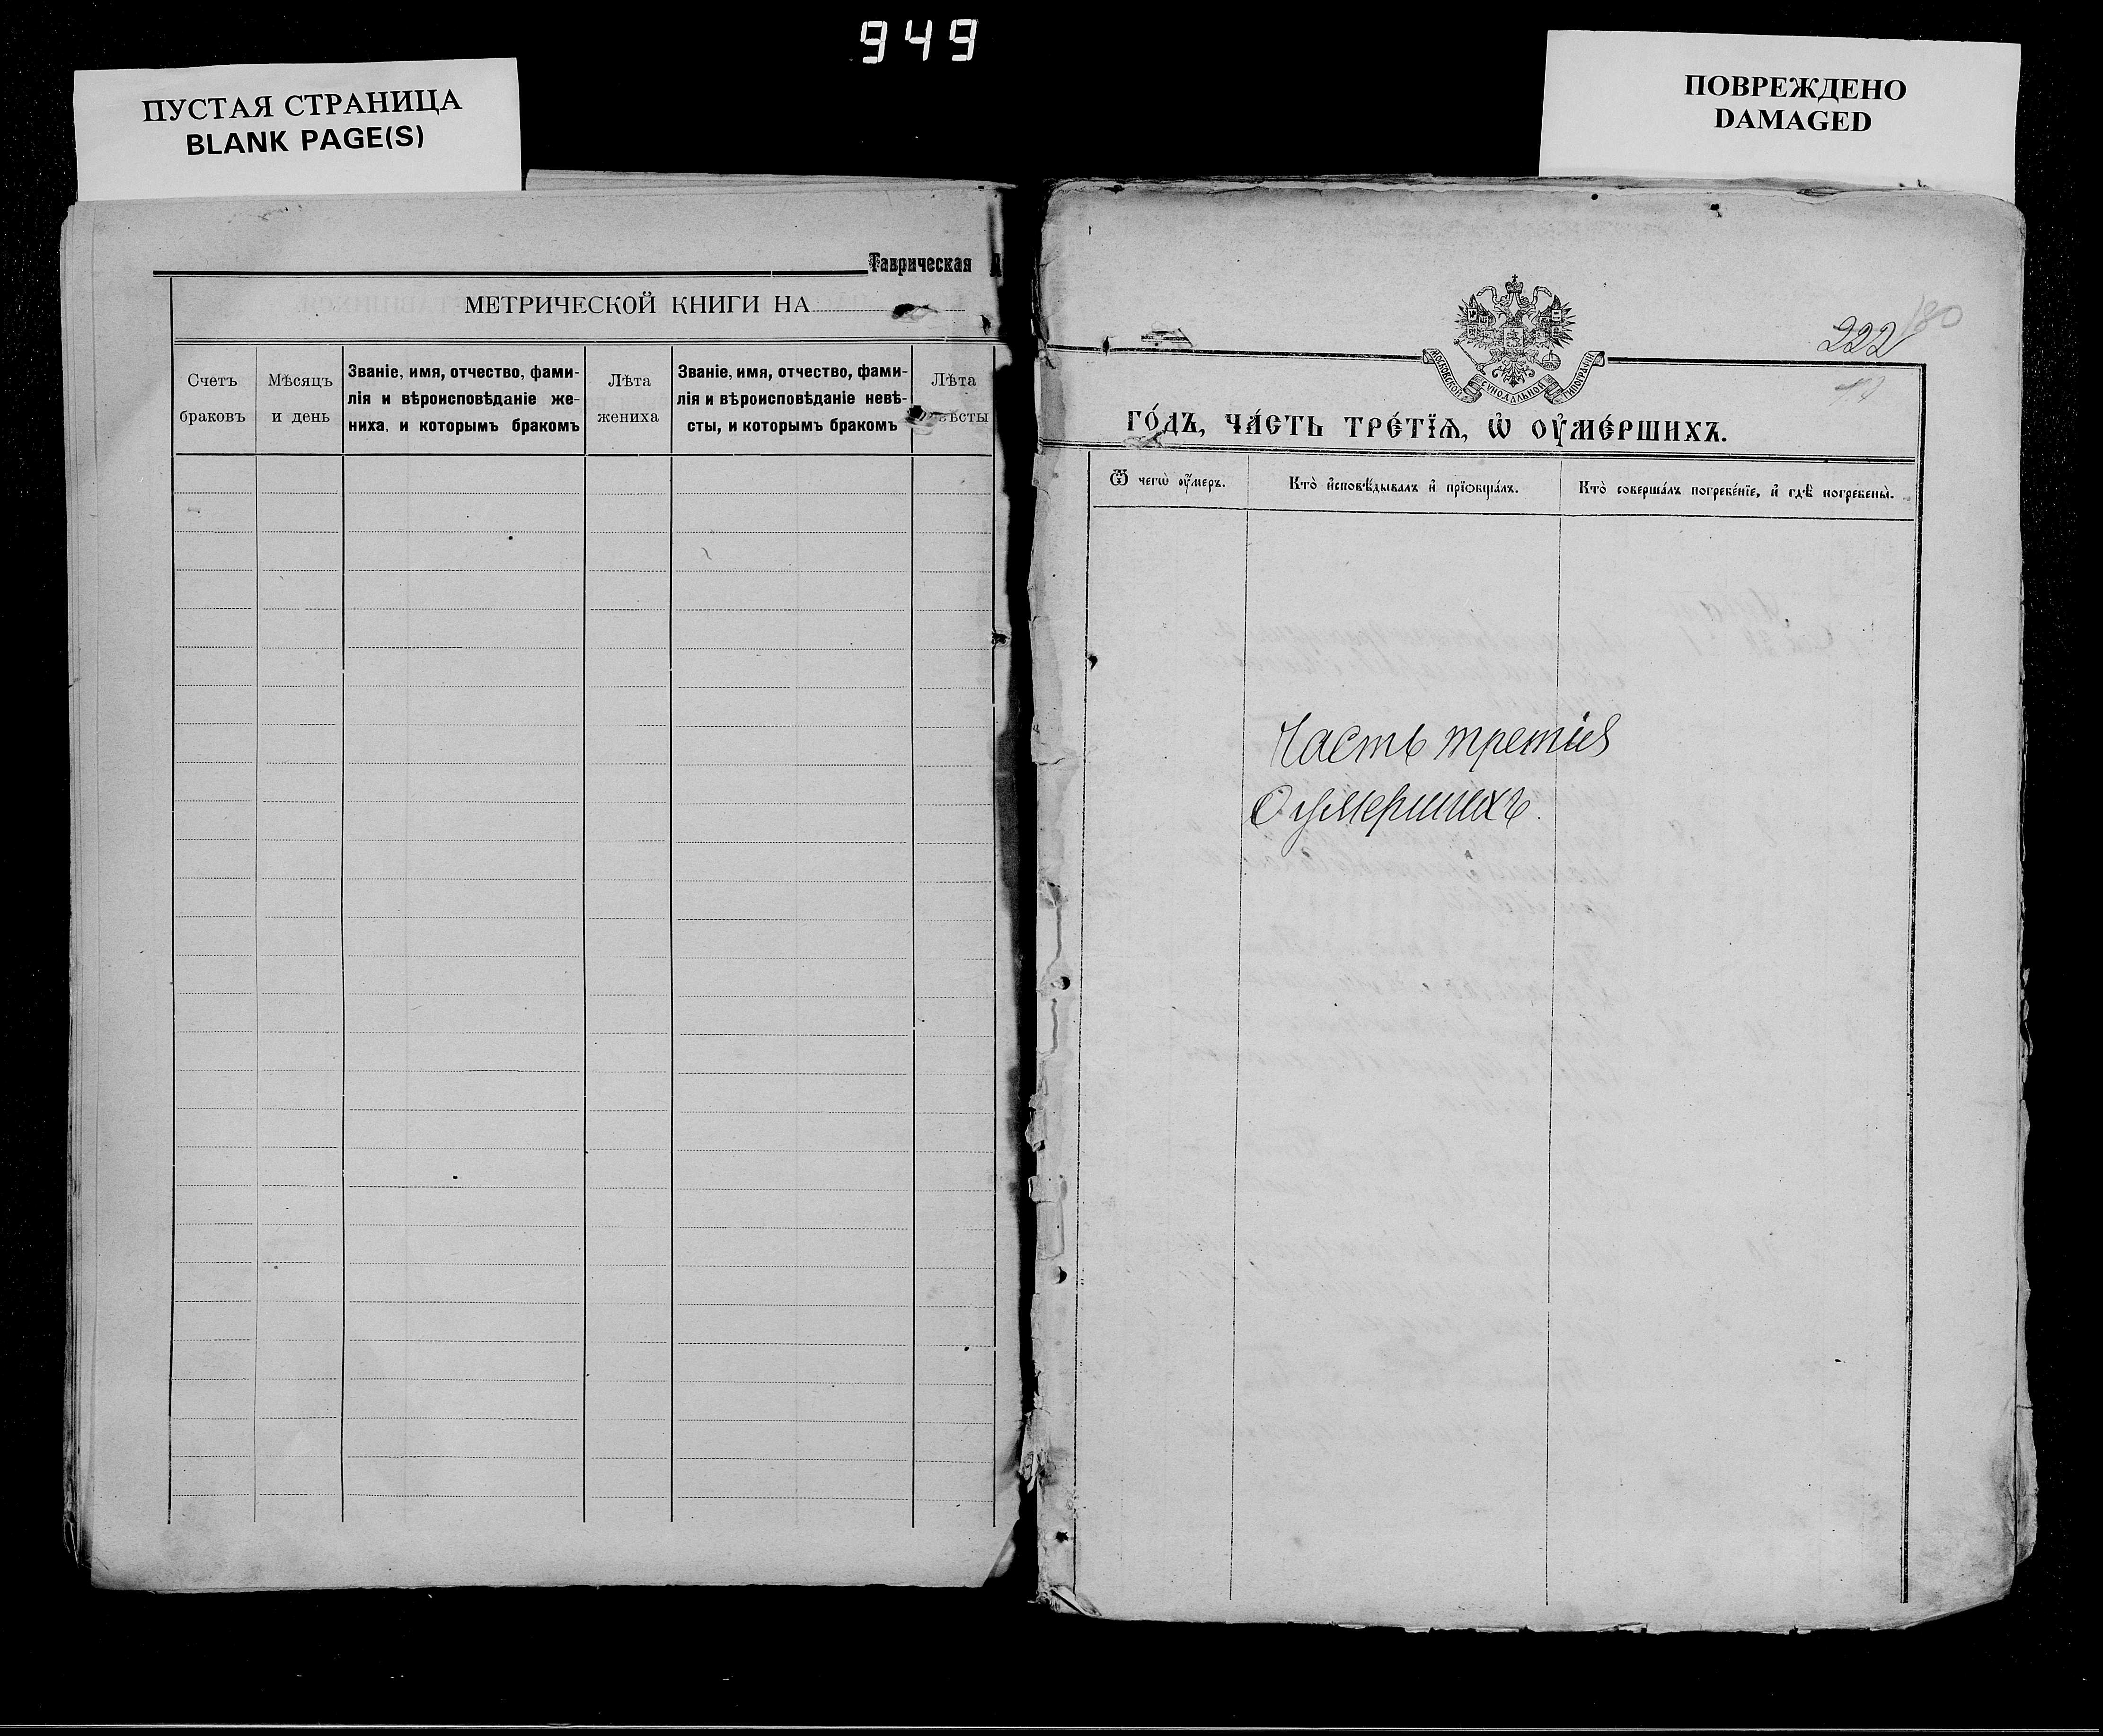 949
ПУСТАЯ СТРАНИЦА
BLANK PAGE(S)
ПОВРЕЖДЕНО
DAMAGED
Таврическая
МЕТРИЧЕСКОЙ КНИГИ НА
Счетъ браковъ
Мѣсяцъ и день
Званіе, имя, отчество, фами-
лія и вѣроисповѣданіе же-
ниха, и которымъ бракомъ
Лѣта жениха
Званіе, имя, отчество, фами-
лія и вѣроисповѣданіе невѣ-
сты, и которымъ бракомъ
Лѣта
222
180
МОСКОВСКОЙ СѴНОДАЛЬНОЙ ТИПОГРАФІИ
ГО́ДЪ, ЧА́СТЬ ТРЕ́ТЇѦ, Ѡ҆ ОУ҆МЕ́РШИХЪ.
Ѿ чегѡ̀ оу҆́меръ.
Кто̀ и҆сповѣ́дывалъ и҆ прїѡбща́лъ.
Кто̀ соверша́лъ погребе́нїе, и҆ гдѣ̀ погребены̀.
Часть третія
О умершихъ.